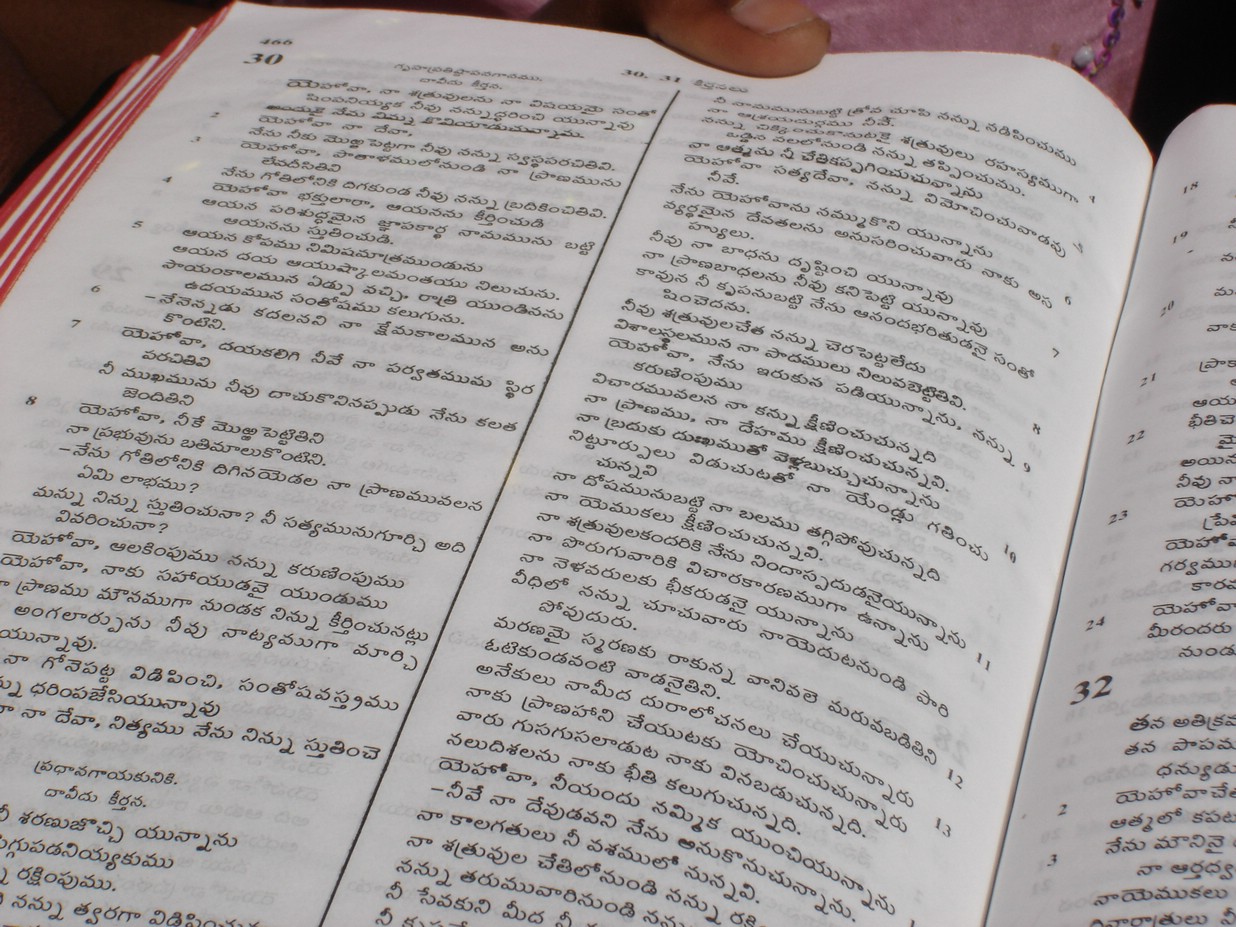 466
30. 31
కీర్తనలు
30
గృహప్రతిష్ఠాపనగానము.
దావీదు కీర్తన.
యెహోవా, నా శత్రువులను నా విషయమై సంతో
షింపనియ్యక నీవు నన్నుద్ధరించి యున్నావు
అందుకై నేను నిన్ను కొనియాడుచున్నాను.
2 యెహోవా నా దేవా,
నేను నీకు మొఱ్ఱపెట్టగా నీవు నన్ను స్వస్థపరచితివి.
3 యెహోవా, పాతాళములోనుండి నా ప్రాణమును
లేవదీసితివి
నేను గోతిలోనికి దిగకుండ నీవు నన్ను బ్రదికించితివి.
4 యెహోవా భక్తులారా, ఆయనను కీర్తించుడి
ఆయన పరిశుద్ధమైన జ్ఞాపకార్థ నామమును బట్టి
ఆయనను స్తుతించుడి.
5 ఆయన కోపము నిమిషమాత్రముండును
ఆయన దయ ఆయుష్కాలమంతయు నిలుచును.
సాయంకాలమున ఏడ్పు వచ్చి, రాత్రి యుండినను
ఉదయమున సంతోషము కలుగును.
6 –నేనెన్నడు కదలనని నా క్షేమకాలమున అను
కొంటిని.
7 యెహోవా, దయకలిగి నీవే నా పర్వతమును స్థిర
పరచితివి
నీ ముఖమును నీవు దాచుకొనినప్పుడు నేను కలత
జెందితిని
8 యెహోవా, నీకే మొఱ్ఱపెట్టితిని
నా ప్రభువును బతిమాలుకొంటిని.
–నేను గోతిలోనికి దిగినయెడల నా ప్రాణమువలన
ఏమి లాభము?
మన్ను నిన్ను స్తుతించునా? నీ సత్యమునుగూర్చి అది
వివరించునా?
యెహోవా, ఆలకింపుము నన్ను కరుణింపుము
యెహోవా, నాకు సహాయుడవై యుండుము
నా ప్రాణము మౌనముగా నుండక నిన్ను కీర్తించునట్లు
అంగలార్పును నీవు నాట్యముగా మార్చి
యున్నావు.
నా గోనెపట్ట విడిపించి, సంతోషవస్త్రము
ధరింపజేసియున్నావు
నా దేవా, నిత్యము నేను నిన్ను స్తుతించె
ప్రధానగాయకునికి.
దావీదు కీర్తన.
నీ శరణుజొచ్చి యున్నాను
సిగ్గుపడనియ్యకుము
రక్షింపుము.
నన్ను త్వరగా విడిపించు
నీ నామమునుబట్టి త్రోవ చూపి నన్ను నడిపించుము
నా ఆశ్రయదుర్గము నీవే.
నన్ను చిక్కించుకొనుటకై శత్రువులు రహస్యముగా 4
ఒడ్డిన వలలోనుండి నన్ను తప్పించుము.
నా ఆత్మను నీ చేతికప్పగించుచున్నాను
యెహోవా సత్యదేవా, నన్ను విమోచించువాడవు 5
నీవే.
నేను యెహోవాను నమ్ముకొని యున్నాను
వ్యర్థమైన దేవతలను అనుసరించువారు నాకు అస 6
హ్యులు.
నీవు నా బాధను దృష్టించి యున్నావు
నా ప్రాణబాధలను నీవు కనిపెట్టి యున్నావు
కావున నీ కృపనుబట్టి నేను ఆనందభరితుడనై సంతో 7
షించెదను.
నీవు శత్రువులచేత నన్ను చెరపెట్టలేదు
విశాలస్థలమున నా పాదములు నిలువబెట్టితివి. 8
యెహోవా, నేను ఇరుకున పడియున్నాను, నన్ను 9
కరుణింపుము
విచారమువలన నా కన్ను క్షీణించుచున్నది
నా ప్రాణము, నా దేహము క్షీణించుచున్నవి.
నా బ్రదుకు దుఃఖముతో వెళ్లబుచ్చుచున్నాను
నిట్టూర్పులు విడుచుటతో నా యేండ్లు గతించు 10
చున్నవి
నా దోషమునుబట్టి నా బలము తగ్గిపోవుచున్నది
నా యెముకలు క్షీణించుచున్నవి.
నా శత్రువులకందరికి నేను నిందాస్పదుడనైయున్నాను 11
నా పొరుగువారికి విచారకారణముగా ఉన్నాను
నా నెళవరులకు భీకరుడనై యున్నాను
వీధిలో నన్ను చూచువారు నాయెదుటనుండి పారి
పోవుదురు.
మరణమై స్మరణకు రాకున్న వానివలె మరువబడితిని 12
ఓటికుండవంటి వాడనైతిని.
అనేకులు నామీద దురాలోచనలు చేయుచున్నారు
నాకు ప్రాణహాని చేయుటకు యోచించుచున్నారు 13
వారు గుసగుసలాడుట నాకు వినబడుచున్నది.
నలుదిశలను నాకు భీతి కలుగుచున్నది.
యెహోవా, నీయందు నమ్మిక యుంచియున్నాను
–నీవే నా దేవుడవని నేను అనుకొనుచున్నాను.
నా కాలగతులు నీ వశములో నున్నవి.
నా శత్రువుల చేతిలోనుండి నన్ను రక్షి
నన్ను తరుమువారినుండి నన్ను
నీ సేవకుని మీద నీ
18
19
20
వాక
21
ఆయ
భీతిచె
22
అయిన
నీవు నా
యెహో
23
యెహోవ
గర్వము
కారవ
24 యెహోవా
మీరందరు
నుండు
32
తన అతిక్రమ
తన పాపమ
ధన్యుడు
2 యెహోవాచేత
ఆత్మలో కపట
3 నేను మౌనినై
నా ఆర్తధ్వ
నాయెముకలు